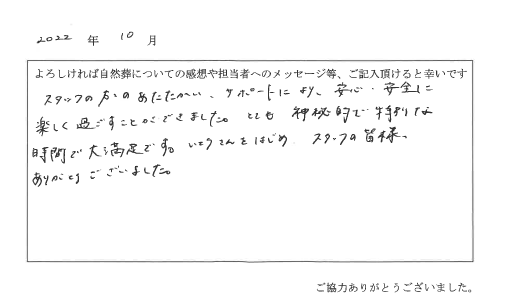 2022 年 10 月
よろしければ自然葬についての感想や担当者へのメッセージ等、ご記入頂けると幸いです
スタッフの方々のあたたかい、サポートにより、安心・安全に
楽しく過ごすことができました。とても 神秘的で特別な
時間で大満足です。 さんをはじめ スタッフの皆様、
ありがとうございました。
ご協力ありがとうございました。